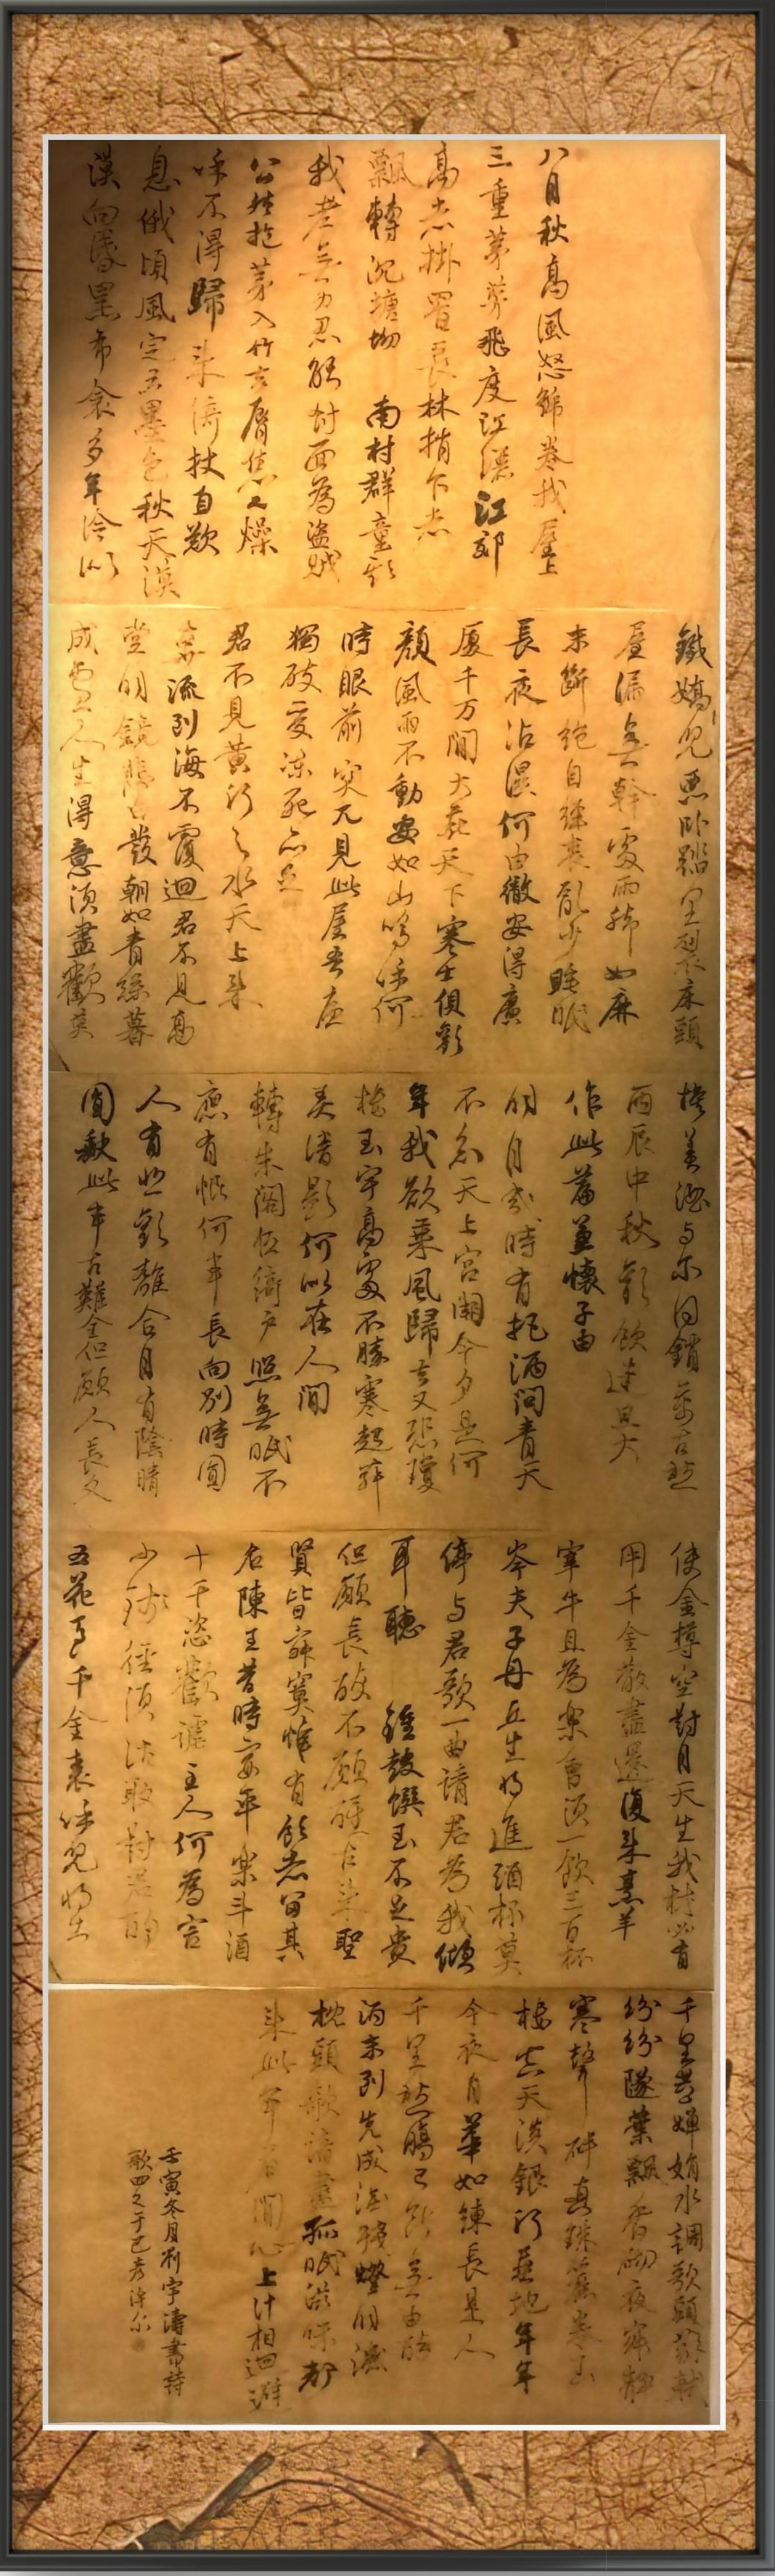 八月秋高風怒號卷我屋上
三重茅茅飛度江灑江郊
高者掛罥長林梢下者
飄轉沉塘坳 南村群童欺
我老無力忍能對面為盜賊
公然抱茅入竹去唇焦口燥
呼不得歸來倚杖自歎
息俄頃風定雲墨色秋天漠
漠向昏黑布衾多年冷似
鐵嬌兒惡卧踏里裂床頭
屋漏無幹處雨腳如麻
未斷絕自經喪亂少睡眠
長夜沾濕何由徹安得廣
廈千万間大庇天下寒士俱歡
顏風雨不動安如山嗚呼何
時眼前突兀見此屋吾廬
獨破受凍死亦足
君不見黃河之水天上來
奔流到海不復迴君不見高
堂明鏡悲白髮朝如青絲暮
成雪人生得意須盡歡莫
換美酒与尔同銷萬古愁
丙辰中秋歡飲達旦大
作此篇兼懷子由
明月幾時有把酒問青天
不知天上宮闕今夕是何
年我欲乘風歸去又恐瓊
樓玉宇高處不勝寒起舞
弄清影何似在人間
轉朱閣低綺户照無眠不
應有恨何事長向別時圓
人有悲歡離合月有陰晴
圓缺此事古難全但願人長久
使金樽空對月天生我材必有
用千金散盡還復來烹羊
宰牛且為樂會須一飲三百杯
岑夫子丹丘生將進酒杯莫
停与君歌一曲請君為我傾
耳聽 鐘鼓饌玉不足貴
但願長醉不願醒古來聖
賢皆寂寞惟有飲者留其
名陳王昔時宴平樂斗酒
十千恣歡謔主人何為言
少錢徑須沽取對君酌
五花馬千金裘呼兒將出
千里共嬋娟水調歌頭蘇軾
紛紛墜葉飄香砌夜寂靜
寒聲碎真珠簾卷玉
樓空天淡銀河垂地年年
今夜月華如練長是人
千里愁腸已斷無由醉
酒未到先成淚殘燈明滅
枕頭欹諳盡孤眠滋味都
來此事眉間心上計相迴避
壬寅冬月劉宇濤書詩
歌四